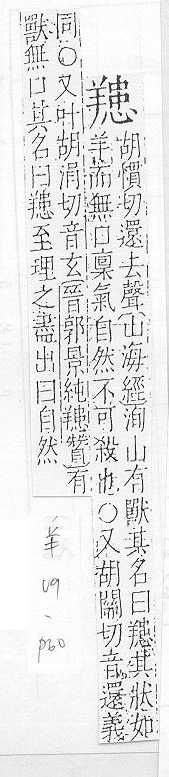 䍺
胡慣切還去聲山海經洵山有獸其名曰䍺其狀如
羊而無口稟氣自然不可殺也○又胡關切音還義
同○又叶胡涓切音玄晉郭景純䍺贊有
獸無口其名曰䍺至理之盡出曰自然
羊
U9
、
p60